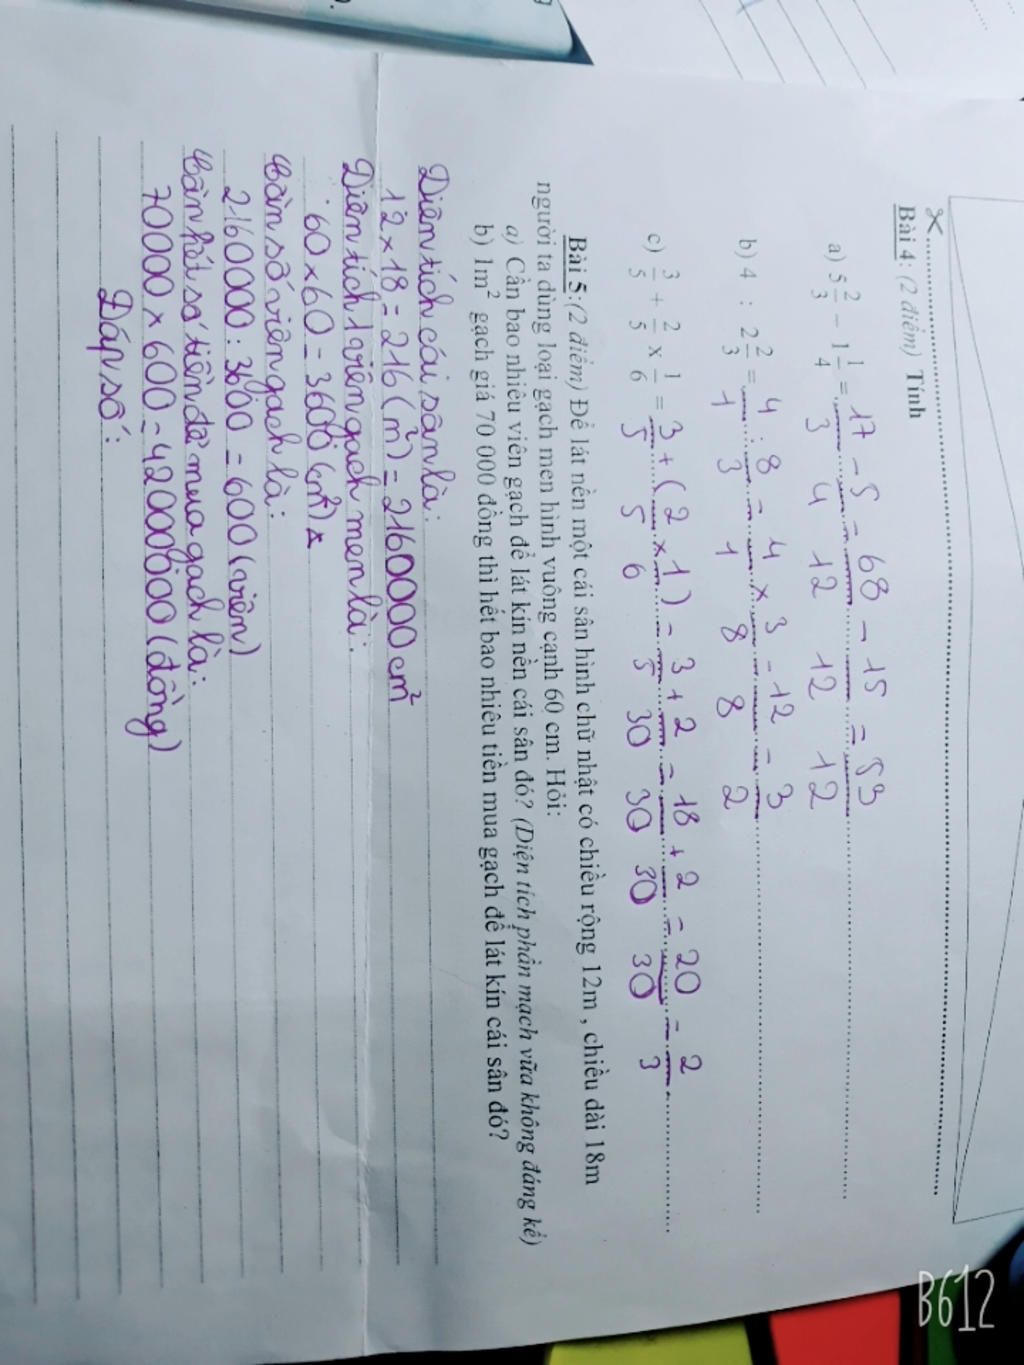 Bài 4: (2 điểm) Tính
a) 5 2/3 - 1 1/4 = 17/3 - 5/4 = 68/12 - 15/12 = 53/12
b) 4 : 2 2/3 = 4/1 : 8/3 = 4/1 × 3/8 = 12/8 = 3/2
c) 3/5 + 2/5 x 1/6 = 3/5 + (2/5 × 1/6) = 3/5 + 2/30 = 18/30 + 2/30 = 20/30 = 2/3
Bài 5: (2 điểm) Để lát nền một cái sân hình chữ nhật có chiều rộng 12m , chiều dài 18m
người ta dùng loại gạch men hình vuông cạnh 60 cm. Hỏi:
a) Cần bao nhiêu viên gạch để lát kín nền cái sân đó? (Diện tích phần mạch vữa không đáng kể)
b) 1m² gạch giá 70 000 đồng thì hết bao nhiêu tiền mua gạch để lát kín cái sân đó?
Diện tích cái sân là:
12 × 18 = 216 (m²) = 2160000 cm²
Diện tích 1 viên gạch men là:
60 × 60 = 3600 (cm²)
Cần số viên gạch là:
2160000 : 3600 = 600 (viên)
Cần hết số tiền để mua gạch là:
70000 × 600 = 42000000 (đồng)
Đáp số:
B612